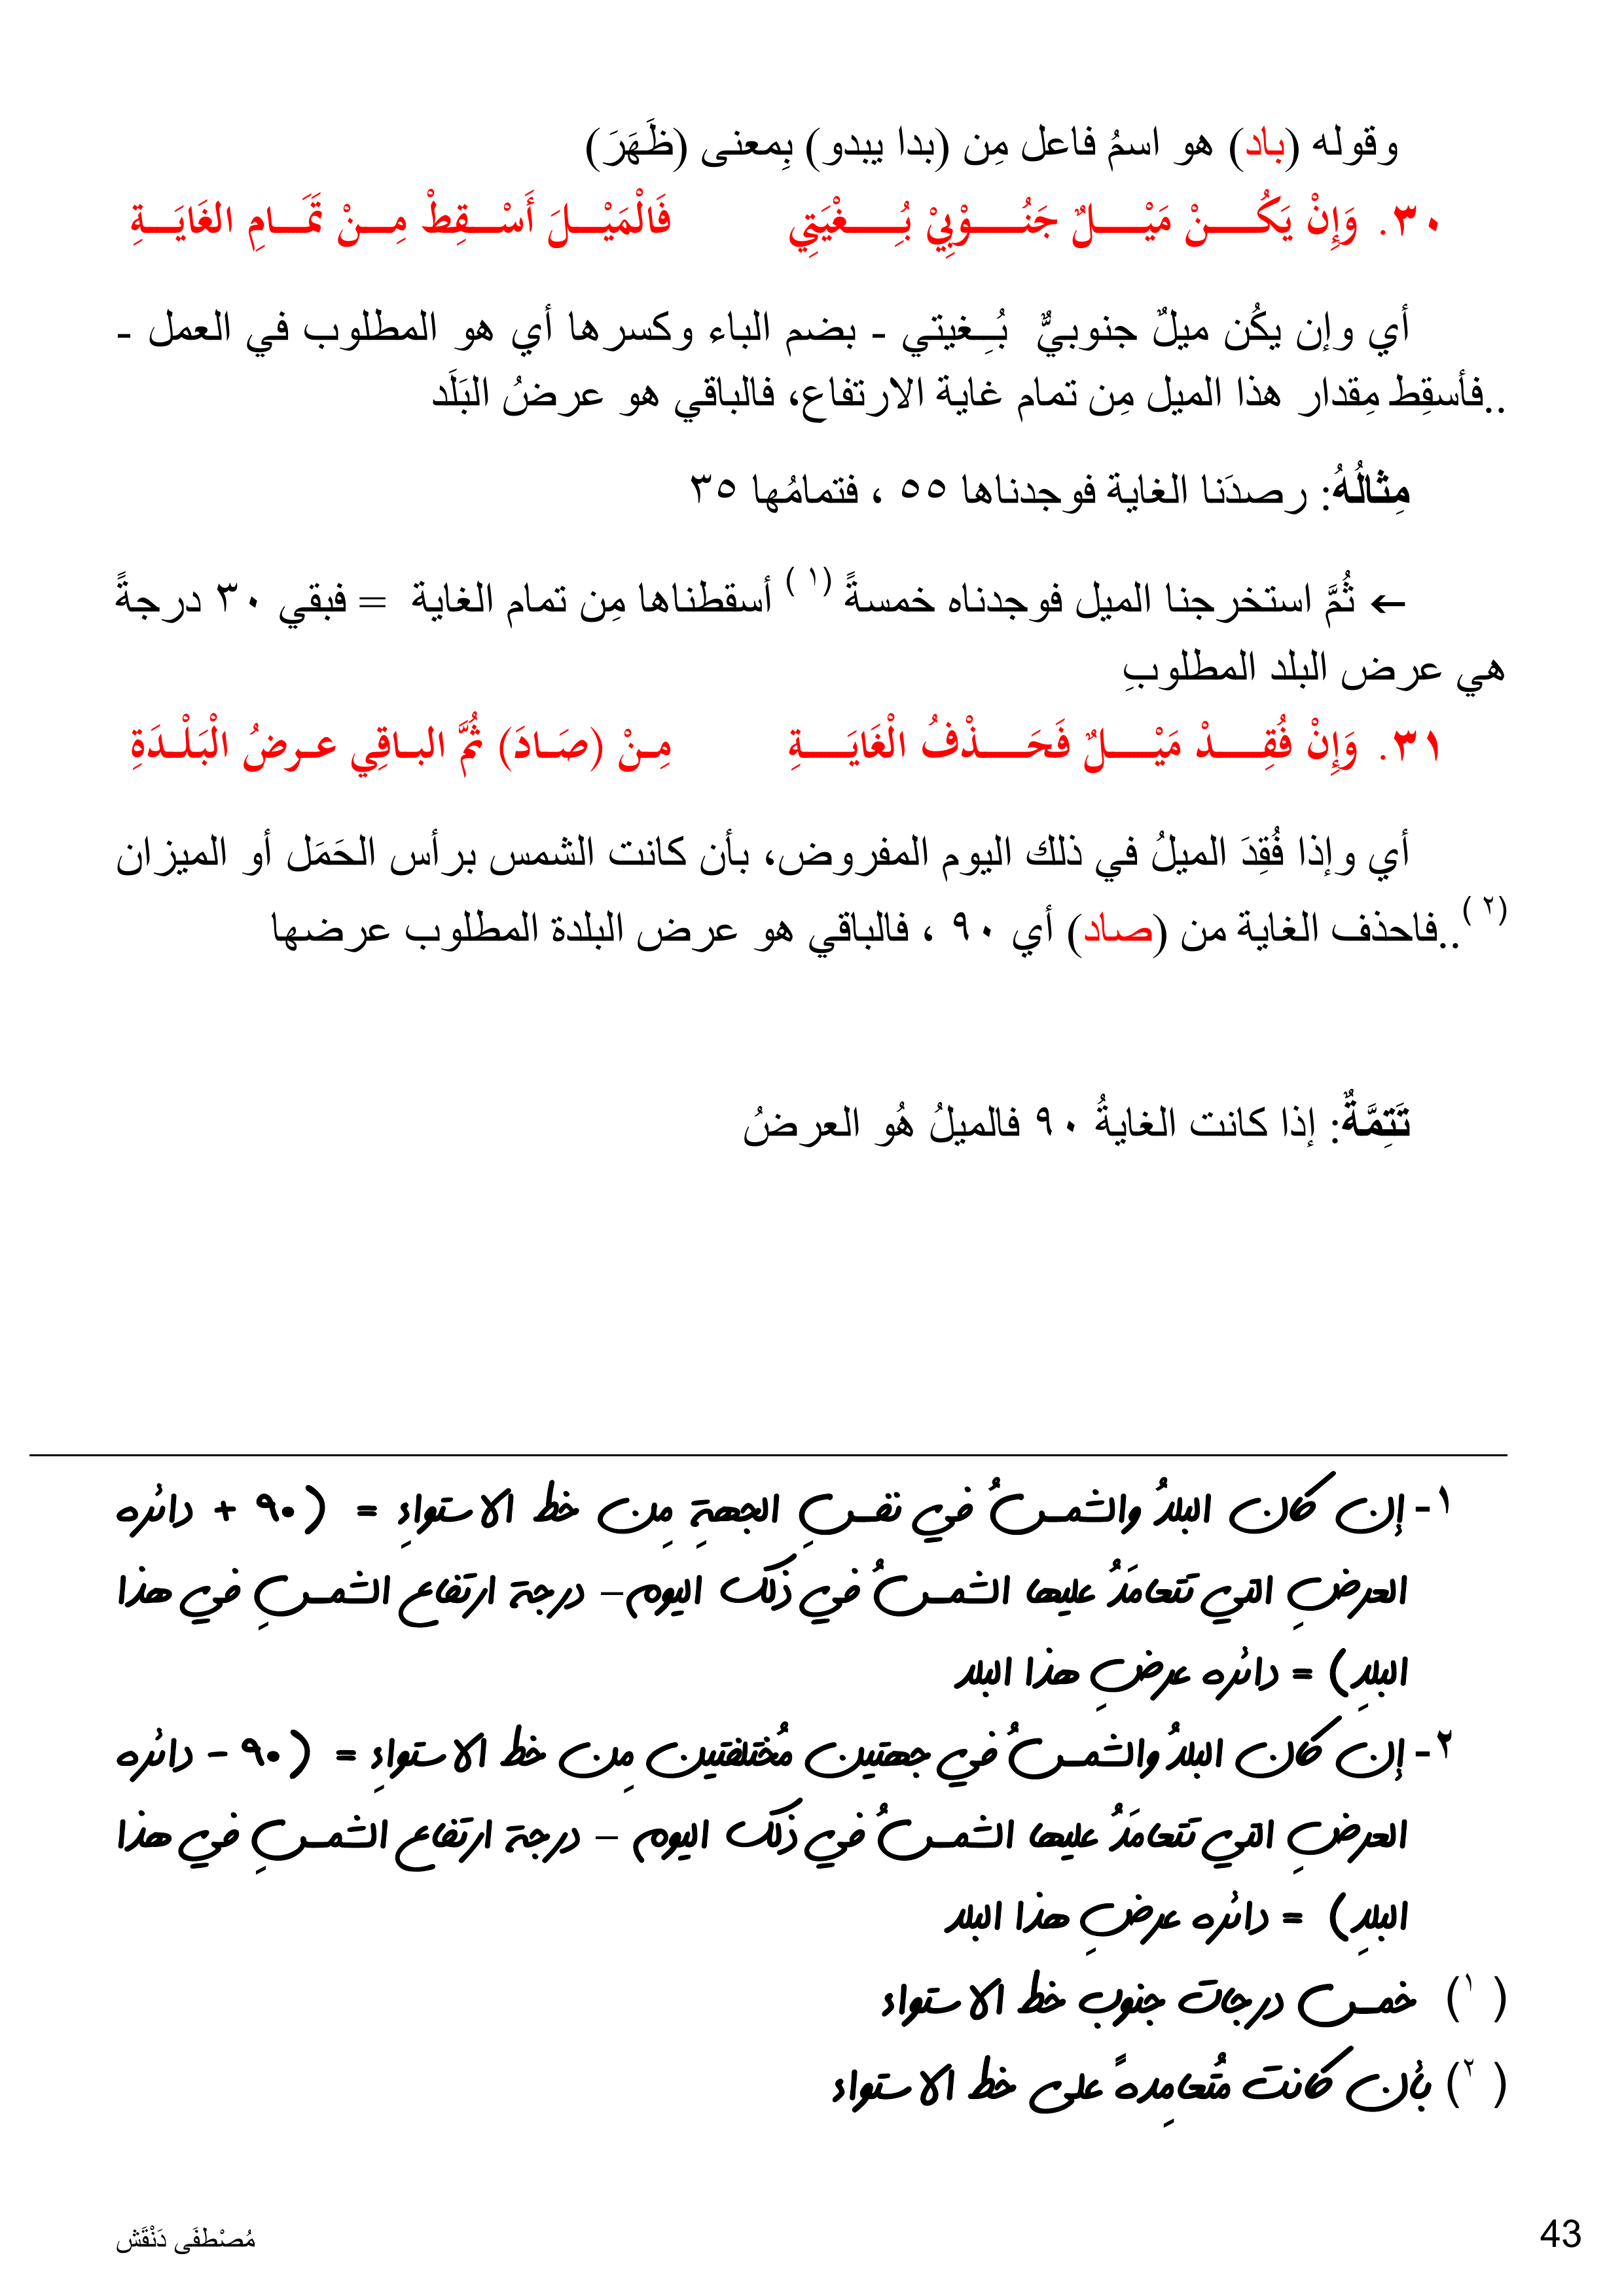 وقوله (باد) هو اسمُ فاعل مِن (بدا يبدو) بِمعنى (ظَهَرَ)
٣٠. وَإِنْ يَكُنْ مَيْلٌ جَنُوْبِيْ بُِغْيَتِي فَالْمَيْلَ أَسْقِطْ مِنْ تَمَامِ الغَايَةِ
أي وإن يكُن ميلٌ جنوبيٌّ بُِغيتي - بضم الباء وكسرها أي هو المطلوب في العمل -
..فأسقِط مِقدار هذا الميل مِن تمام غاية الارتفاع، فالباقي هو عرضُ البَلَد
مِثالُهُ: رصدَنا الغاية فوجدناها ٥٥ ، فتمامُها ٣٥
← ثُمَّ استخرجنا الميل فوجدناه خمسةً (١) أسقطناها مِن تمام الغاية = فبقي ٣٠ درجةً
هي عرض البلد المطلوبِ
٣١. وَإِنْ فُقِدْ مَيْلٌ فَحَذْفُ الْغَايَةِ مِنْ (صَادَ) ثُمَّ الباقِي عرضُ الْبَلْدَةِ
أي وإذا فُقِدَ الميلُ في ذلك اليوم المفروض، بأن كانت الشمس برأس الحَمَل أو الميزان
(٢)..فاحذف الغاية من (صاد) أي ٩٠ ، فالباقي هو عرض البلدة المطلوب عرضها
تَتِمَّةٌ: إذا كانت الغايةُ ٩٠ فالميلُ هُو العرضُ
١- إن كان البلدُ والشمسُ في نفسِ الجهةِ مِن خط الاستواءِ = (٩٠ + دائره
العرضِ التي تتعامَدُ عليها الشمسُ في ذلك اليوم– درجة ارتفاع الشمسِ في هذا
البلدِ) = دائره عرضِ هذا البلد
٢- إن كان البلدُ والشمسُ في جهتين مُختلفتين مِن خط الاستواءِ = (٩٠ – دائره
العرضِ التي تتعامَدُ عليها الشمسُ في ذلك اليوم – درجة ارتفاع الشمسِ في هذا
البلدِ) = دائره عرضِ هذا البلد
(١) خمس درجات جنوب خط الاستواء
(٢) بأن كانت مُتعامِدهً على خط الاستواء
مُصْطفَى دَنْقَش 43